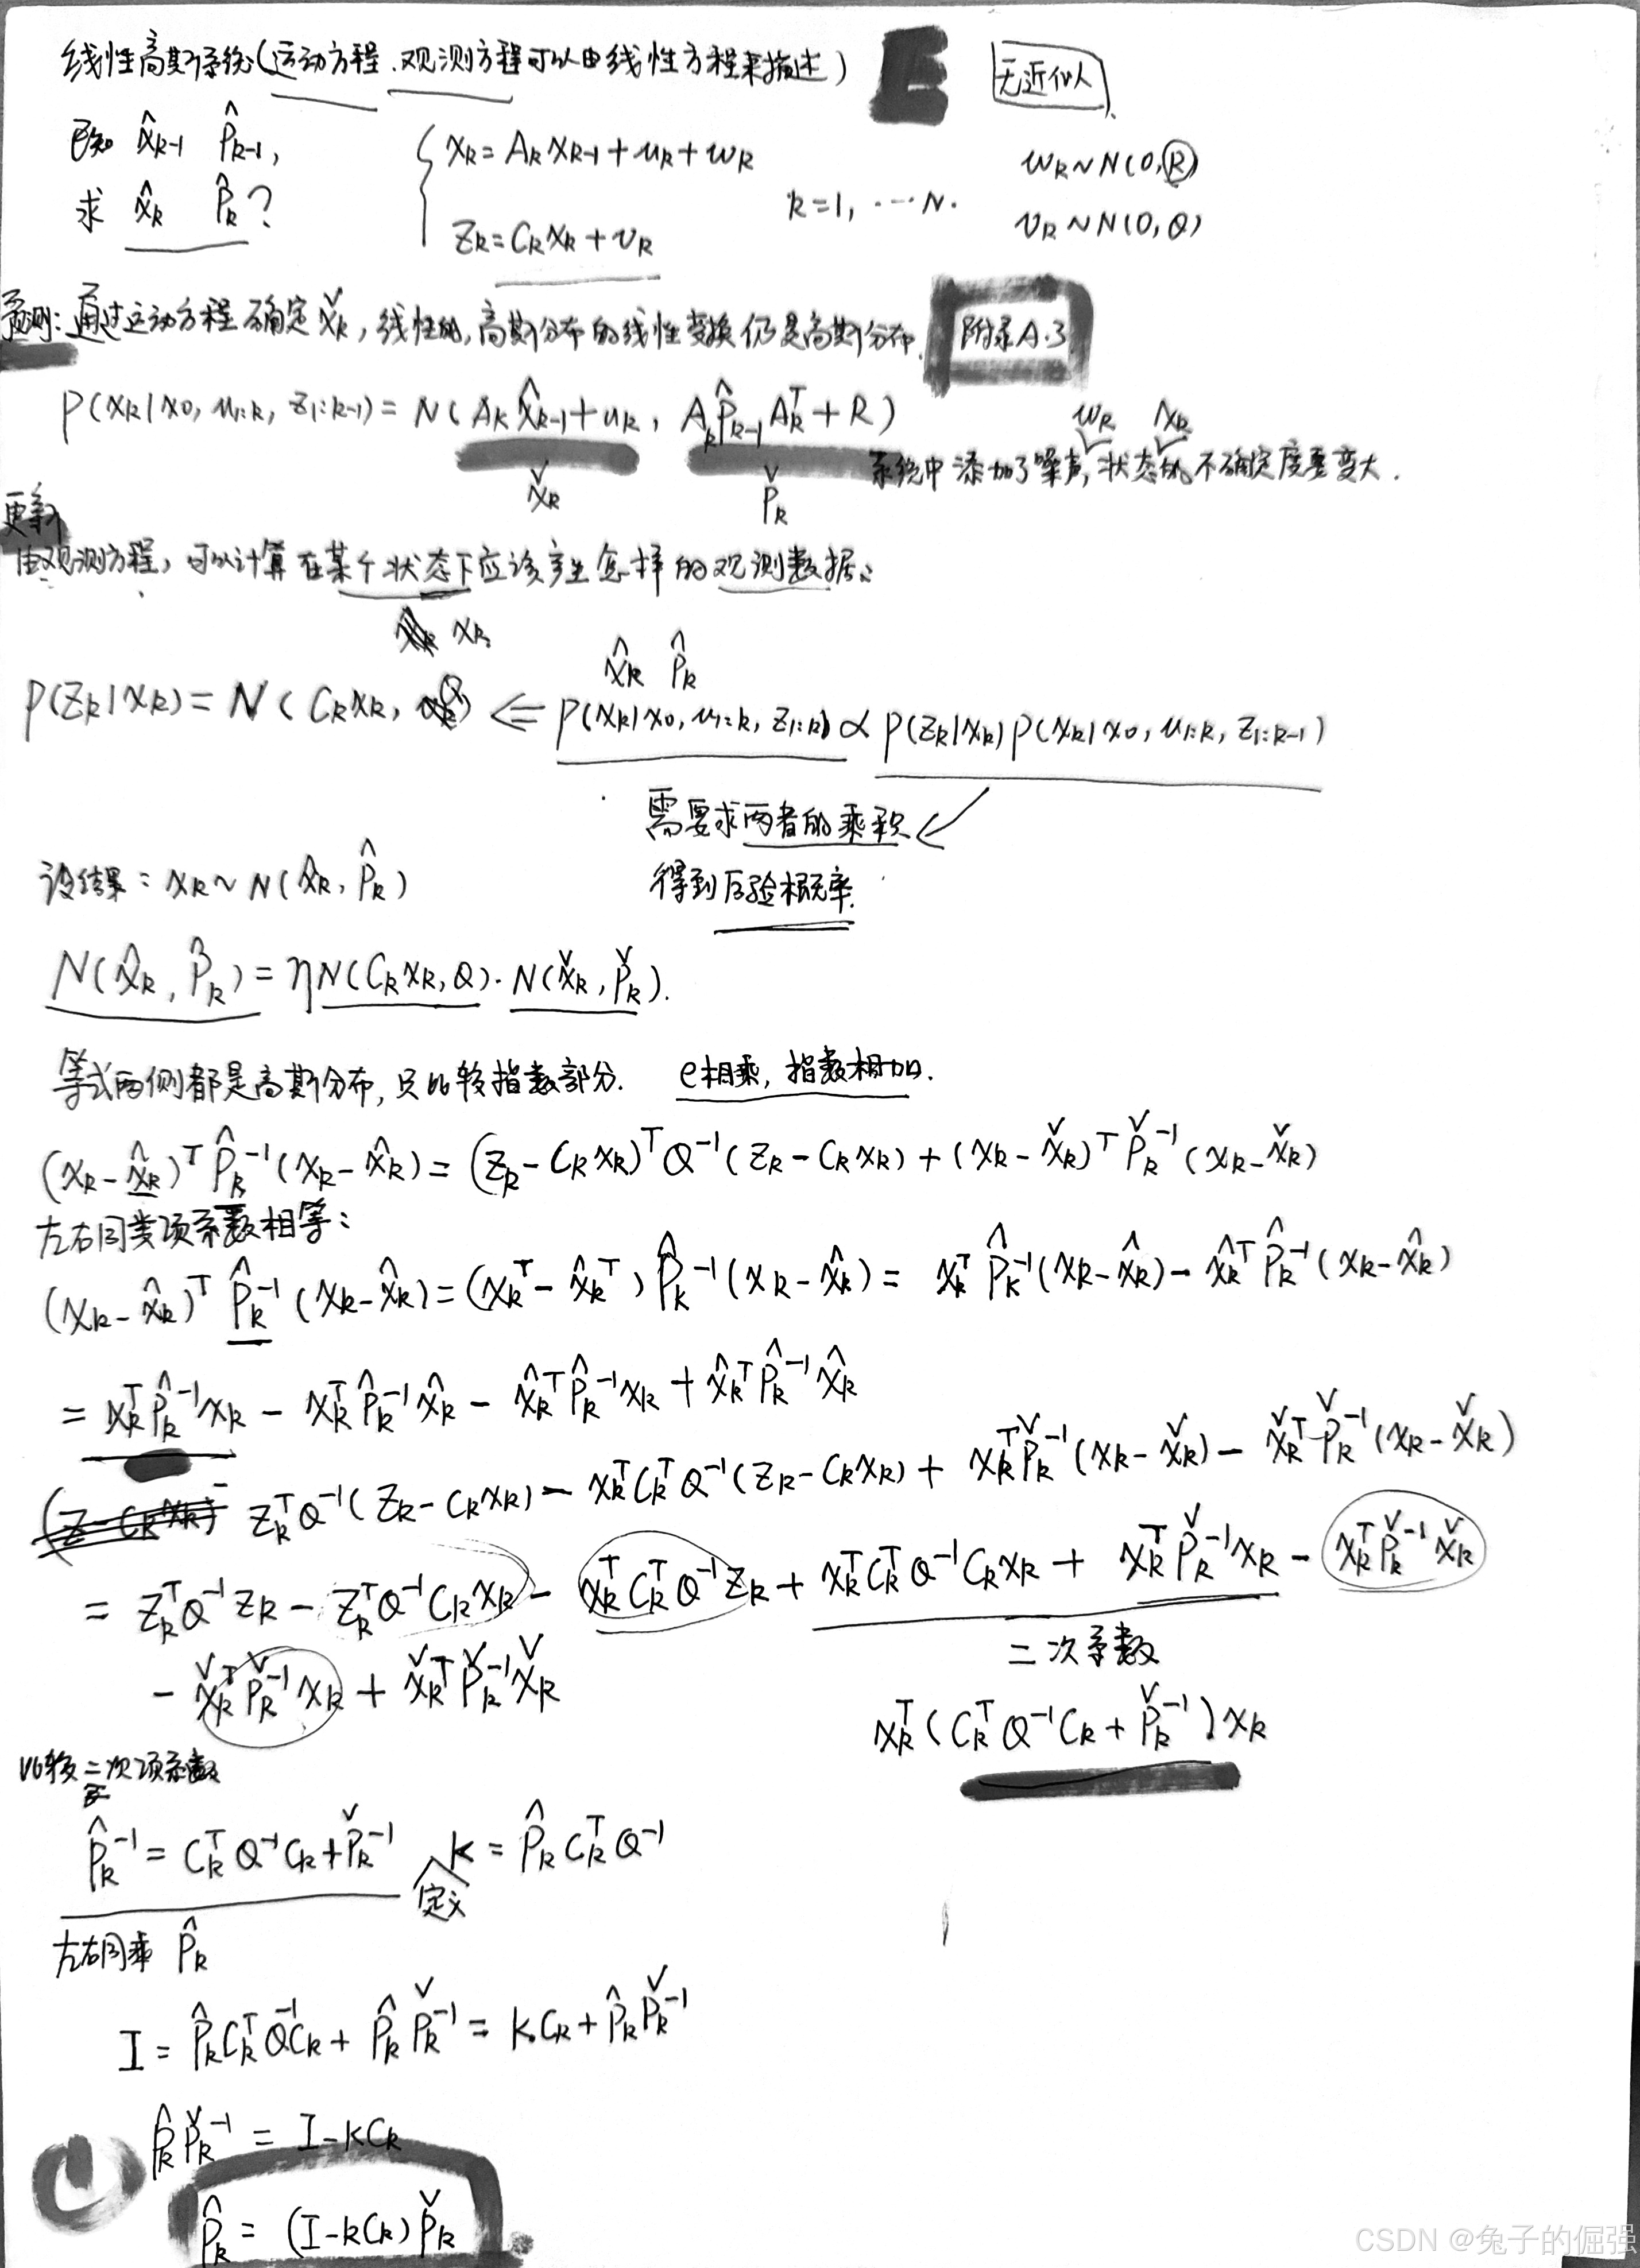 线性高斯系统(运动方程、观测方程可以由线性方程来描述) 无近似
已知 x̂ₖ₋₁ P̂ₖ₋₁, { xₖ = Aₖxₖ₋₁ + uₖ + wₖ wₖ ~ N(0, R)
求 x̂ₖ P̂ₖ ? zₖ = Cₖxₖ + vₖ k=1, ⋯ N. vₖ ~ N(0, Q)
预测: 通过运动方程确定 x̌ₖ, 线性的, 高斯分布的线性变换仍是高斯分布. 附录A.3
P(xₖ|x₀, u₁:ₖ, z₁:ₖ₋₁) = N(Aₖx̂ₖ₋₁ + uₖ, AₖP̂ₖ₋₁Aₖᵀ + R) wₖ xₖ
x̌ₖ P̌ₖ 系统中添加了噪声, 状态的不确定度要变大.
更新
由观测方程, 可以计算在某个状态下应该产生怎样的观测数据:
xₖ
x̂ₖ P̂ₖ
P(zₖ|xₖ) = N(Cₖxₖ, Q) ⇐ P(xₖ|x₀, u₁:ₖ, z₁:ₖ) ∝ P(zₖ|xₖ)P(xₖ|x₀, u₁:ₖ, z₁:ₖ₋₁)
需要求两者的乘积
设结果: xₖ ~ N(x̂ₖ, P̂ₖ) 得到后验概率.
N(x̂ₖ, P̂ₖ) = ηN(Cₖxₖ, Q)·N(x̌ₖ, P̌ₖ).
等式两侧都是高斯分布, 只比较指数部分. e相乘, 指数相加.
(xₖ-x̂ₖ)ᵀP̂ₖ⁻¹(xₖ-x̂ₖ) = (zₖ-Cₖxₖ)ᵀQ⁻¹(zₖ-Cₖxₖ) + (xₖ-x̌ₖ)ᵀP̌ₖ⁻¹(xₖ-x̌ₖ)
左右同类项系数相等:
(xₖ-x̂ₖ)ᵀP̂ₖ⁻¹(xₖ-x̂ₖ) = (xₖᵀ-x̂ₖᵀ)P̂ₖ⁻¹(xₖ-x̂ₖ) = xₖᵀP̂ₖ⁻¹(xₖ-x̂ₖ) - x̂ₖᵀP̂ₖ⁻¹(xₖ-x̂ₖ)
= xₖᵀP̂ₖ⁻¹xₖ - xₖᵀP̂ₖ⁻¹x̂ₖ - x̂ₖᵀP̂ₖ⁻¹xₖ + x̂ₖᵀP̂ₖ⁻¹x̂ₖ
zₖᵀQ⁻¹(zₖ-Cₖxₖ) - xₖᵀCₖᵀQ⁻¹(zₖ-Cₖxₖ) + xₖᵀP̌ₖ⁻¹(xₖ-x̌ₖ) - x̌ₖᵀP̌ₖ⁻¹(xₖ-x̌ₖ)
= zₖᵀQ⁻¹zₖ - zₖᵀQ⁻¹Cₖxₖ - xₖᵀCₖᵀQ⁻¹zₖ + xₖᵀCₖᵀQ⁻¹Cₖxₖ + xₖᵀP̌ₖ⁻¹xₖ - xₖᵀP̌ₖ⁻¹x̌ₖ
- x̌ₖᵀP̌ₖ⁻¹xₖ + x̌ₖᵀP̌ₖ⁻¹x̌ₖ 二次系数
xₖᵀ(CₖᵀQ⁻¹Cₖ + P̌ₖ⁻¹)xₖ
比较二次项系数
P̂ₖ⁻¹ = CₖᵀQ⁻¹Cₖ + P̌ₖ⁻¹ K = P̂ₖCₖᵀQ⁻¹
定义
左右同乘 P̂ₖ
I = P̂ₖCₖᵀQ⁻¹Cₖ + P̂ₖP̌ₖ⁻¹ = KCₖ + P̂ₖP̌ₖ⁻¹
P̂ₖP̌ₖ⁻¹ = I-KCₖ
① P̂ₖ = (I-KCₖ)P̌ₖ
CSDN @兔子的倔强